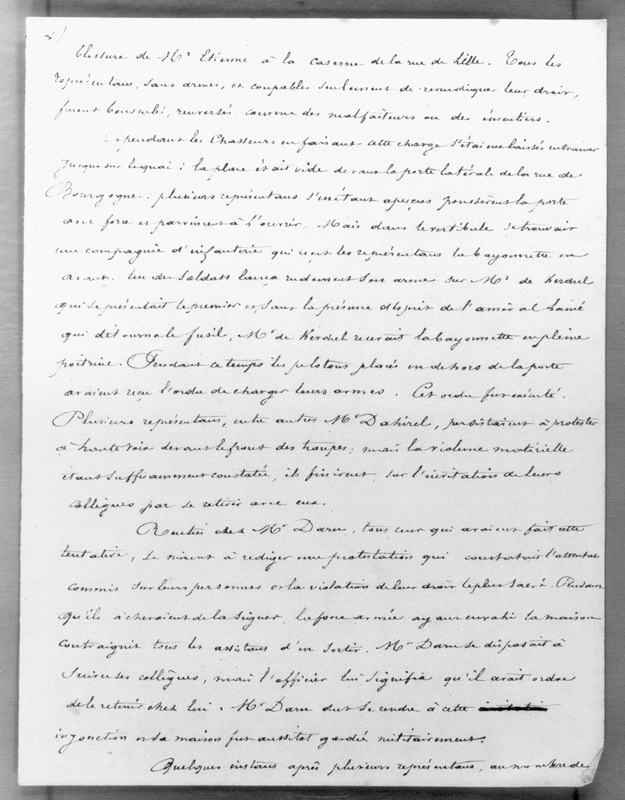 2/
blessure de Mr Etienne à la caserne de la rue de Lille. Tous les
représentans, sans armes, et coupables seulement de revendiquer leur droit,
furent bousculés, renversés, comme des malfaiteurs ou des émeutiers.
Cependant les Chasseurs en faisant cette charge s'étaient laissés entrainer
jusque sur le quai ; la place était vide devant la porte latérale de la rue de
Bourgogne ; plusieurs représentans s'en étant aperçus poussèrent la porte
avec force et parvinrent à l'ouvrir. Mais dans le vestibule se trouvait
une compagnie d'infanterie qui reçut les représentans la bayonnette en
avant. Un des soldats lança rudement son arme sur Mr de Kerdrel
qui se présentait le premier et sans la présence d'esprit de l'amiral Lainé
qui détourna le fusil, Mr de Kerdrel recevait la bayonnette en pleine
poitrine. Pendant ce temps les pelotons placés en dehors de la porte
avaient reçu l'ordre de charger leurs armes. Cet ordre fut exécuté.
Plusieurs représentans, entre autres Mr Dahirel, persistaient à protester
à haute voix devant le front des troupes ; mais la violence matérielle
étant suffisamment constatée, ils finirent, sur l'invitation de leurs
collègues, par se retirer avec eux.
Rentrés chez Mr Daru, tous ceux qui avaient fait cette
tentative, se mirent à rediger une protestation qui constatait l'attentat
commis sur leurs personnes et la violation de leur droit le plus sacré. Pendant
qu'ils achevaient de la signer, la force armée ayant envahi la maison
contraignit tous les assistans d'en sortir. Mr Daru se disposait à
suivre ses collègues, mais l'officier lui signifia qu'il avait ordre
de le retenir chez lui. Mr Daru dut se rendre à cette
injonction et sa maison fut aussitot gardée militairement.
Quelques instans après plusieurs représentans, au nombre de